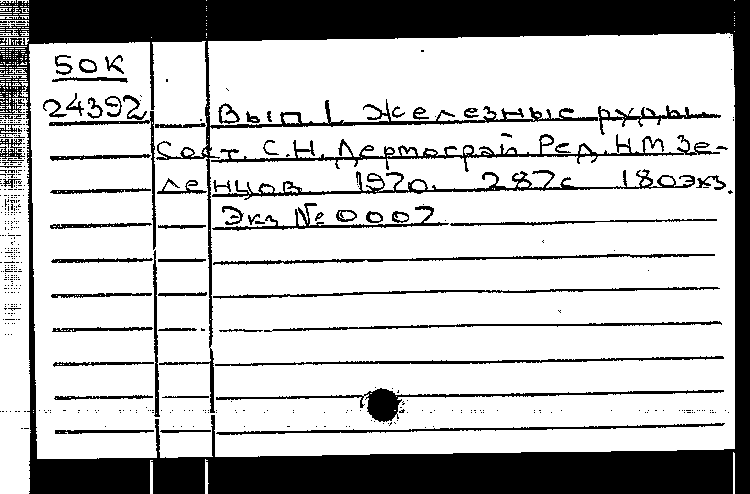 БОК
24392 Вып. 1. Железные руды.
Сост. С.Н. Дермограй. Ред. Н.М. Зе-
ленцов 1970. 287с 180экз.
Экз № 0007